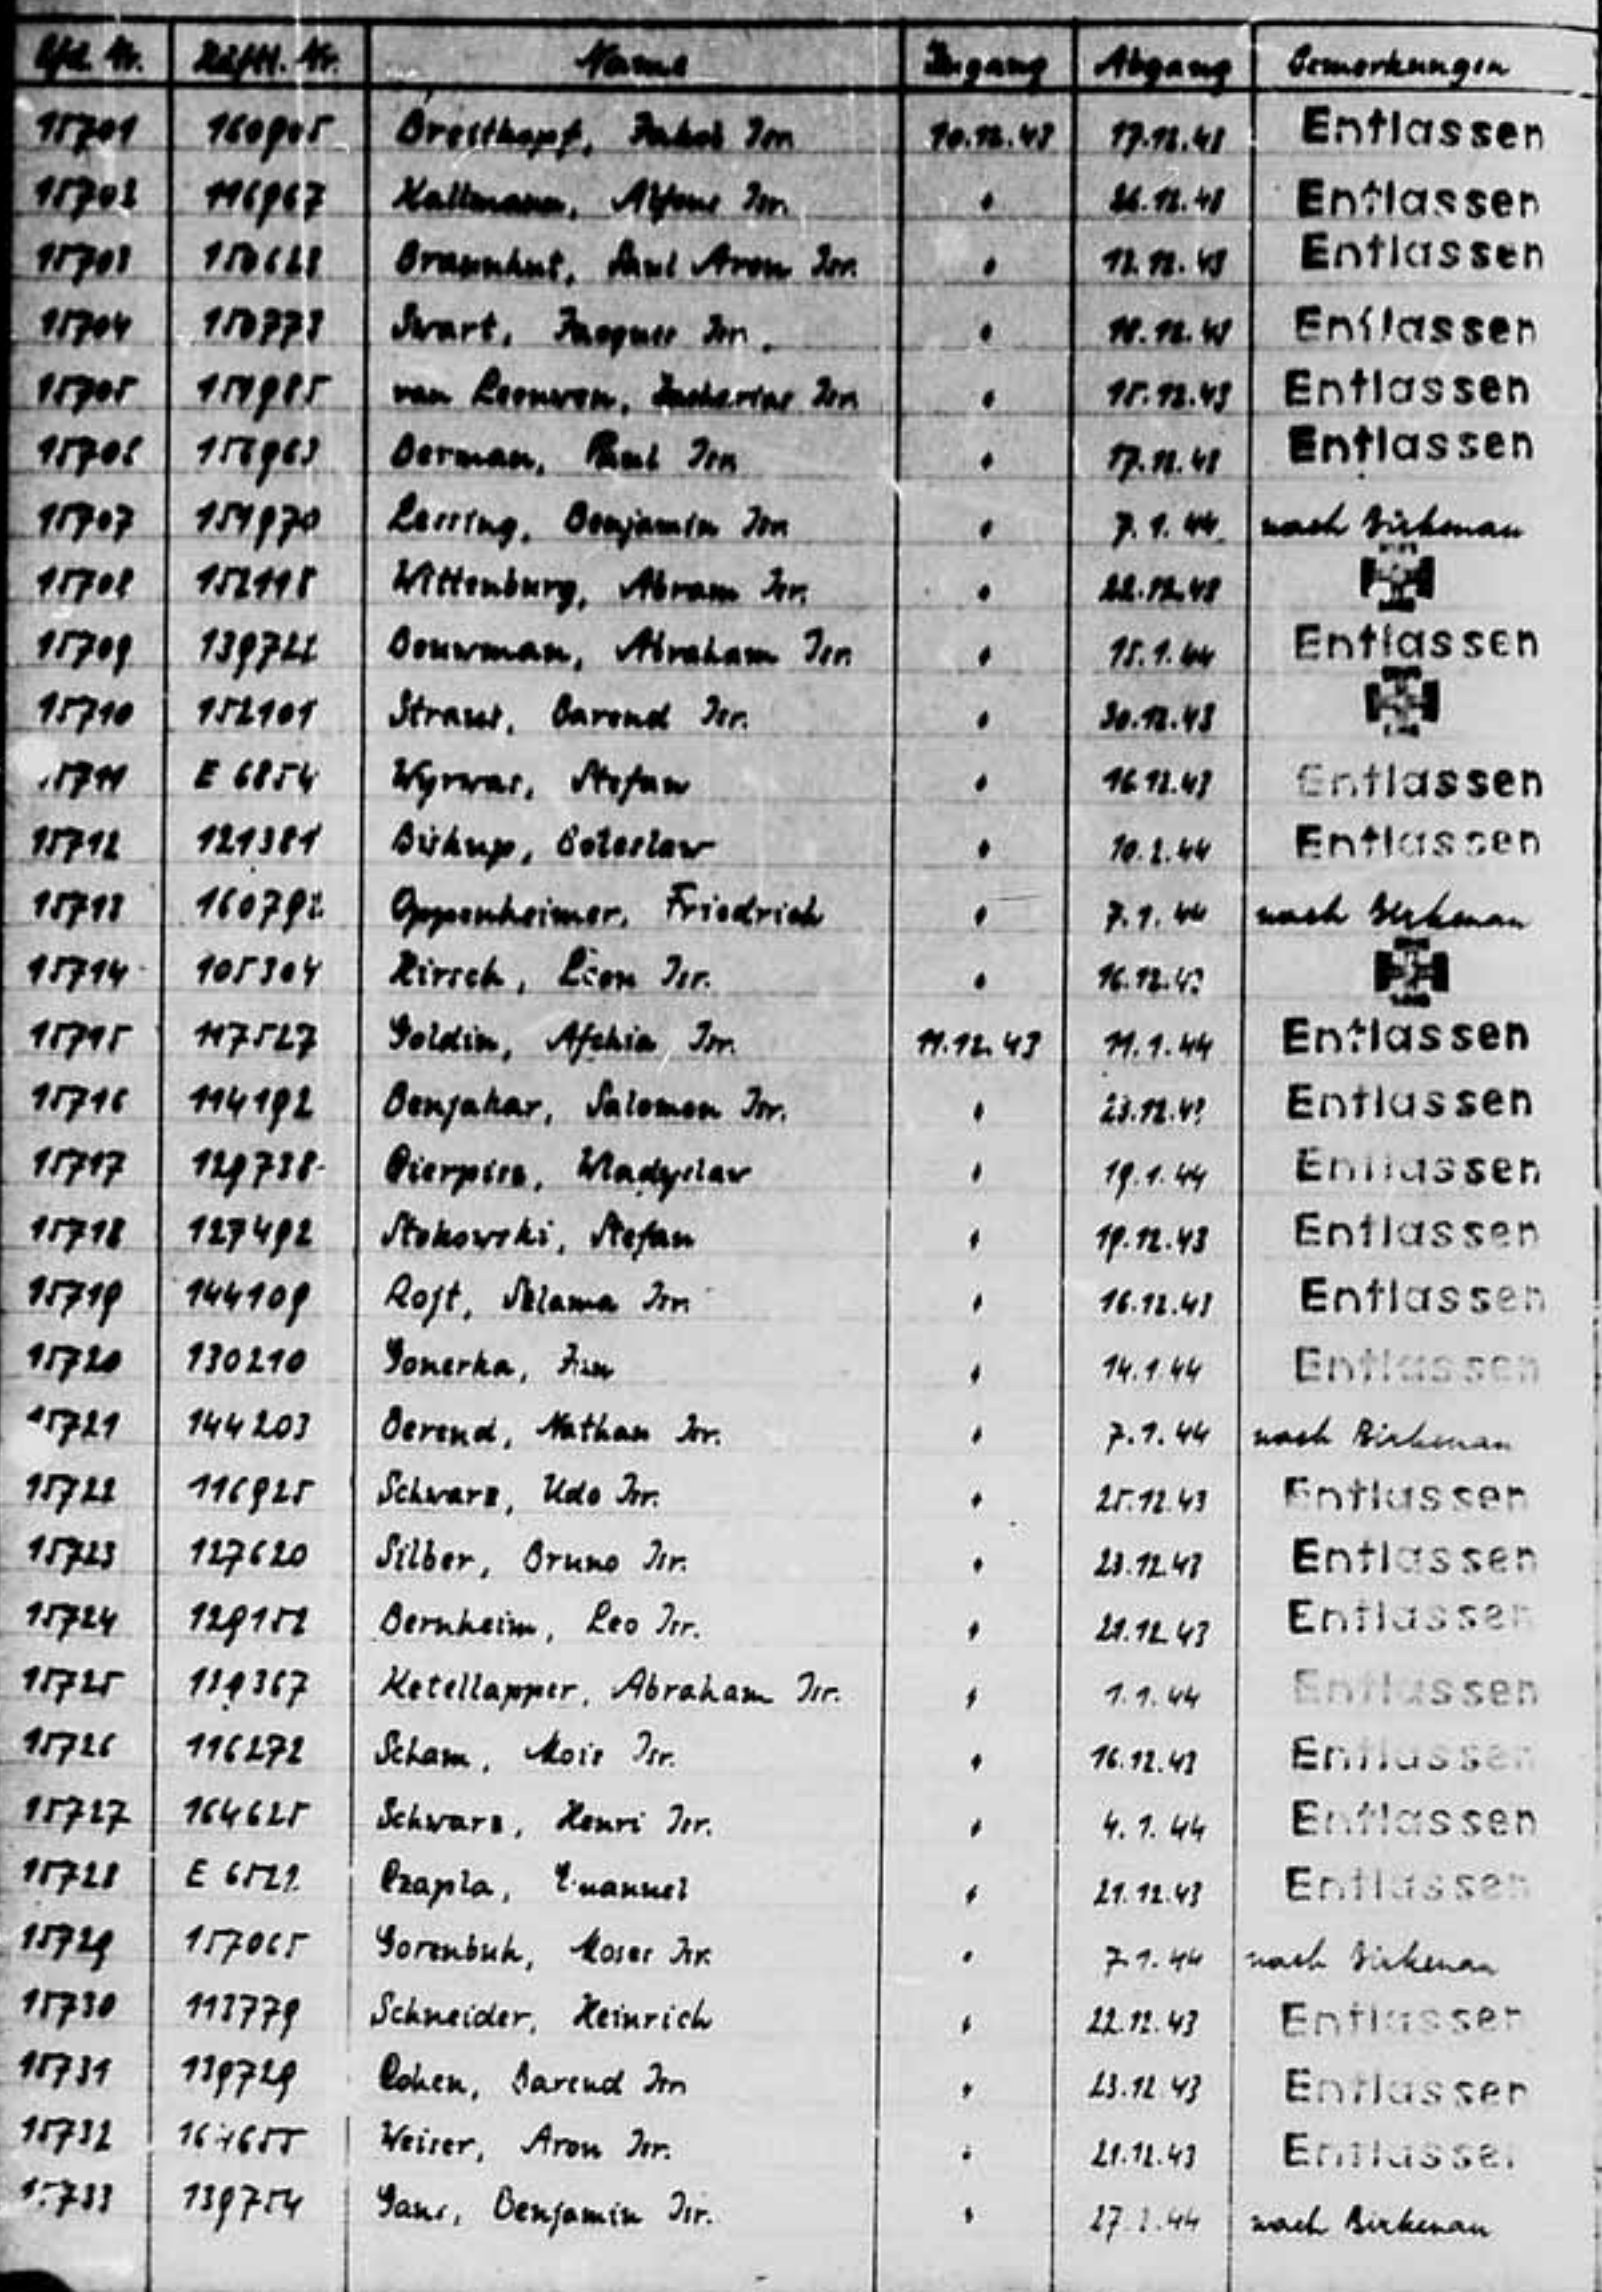 Lfd. Nr. Häftl. Nr. Name Zugang Abgang Bemerkungen
15701 160905 Breitkopf, Jakob Isr. 10.12.43 17.12.43 Entlassen
15702 116967 Kallmann, Alfons Isr. " 26.12.43 Entlassen
15703 150628 Braunhut, Saul Aron Isr. " 12.12.43 Entlassen
15704 150773 Swart, Jacques Isr. " 18.12.43 Entlassen
15705 151985 van Leeuwen, Zacharias Isr. " 15.12.43 Entlassen
15706 156963 Berman, Paul Isr. " 17.12.43 Entlassen
15707 151970 Lessing, Benjamin Isr. " 7.1.44 nach Birkenau
15708 152118 Wittenburg, Abram Isr. " 22.12.43
15709 139722 Bouwman, Abraham Isr. " 15.1.44 Entlassen
15710 152101 Straus, Barend Isr. " 30.12.43
15711 E 6854 Wyrwas, Stefan " 16.12.43 Entlassen
15712 121381 Biskup, Boleslaw " 10.2.44 Entlassen
15713 160792 Oppenheimer, Friedrich " 7.1.44 nach Birkenau
15714 105304 Hirsch, Leon Isr. " 16.12.43
15715 117527 Goldin, Afchia Isr. 11.12.43 11.1.44 Entlassen
15716 114192 Benjakar, Salomon Isr. " 23.12.43 Entlassen
15717 129738 Wladyslaw " 19.1.44 Entlassen
15718 127492 Stokowski, Stefan " 19.12.43 Entlassen
15719 144109 Rojt, Szlama Isr. " 16.12.43 Entlassen
15720 130210 Gonerka, Jan " 14.1.44 Entlassen
15721 144203 Berend, Nathan Isr. " 7.1.44 nach Birkenau
15722 116925 Schwarz, Udo Isr. " 25.12.43 Entlassen
15723 127620 Silber, Bruno Isr. " 23.12.43 Entlassen
15724 129152 Bernheim, Leo Isr. " 21.12.43 Entlassen
15725 139367 Ketellapper, Abraham Isr. " 1.1.44 Entlassen
15726 116272 Scham, Mois Isr. " 16.12.43 Entlassen
15727 164625 Schwarz, Henri Isr. " 4.1.44 Entlassen
15728 E 6521 Czapla, Emanuel " 21.12.43 Entlassen
15729 157065 Gorenbuh, Moses Isr. " 7.1.44 nach Birkenau
15730 113779 Schneider, Heinrich " 22.12.43 Entlassen
15731 139729 Cohen, Barend Isr. " 23.12.43 Entlassen
15732 Weiser, Aron Isr. " 21.12.43 Entlassen
15733 139754 Gans, Benjamin Isr. " nach Birkenau